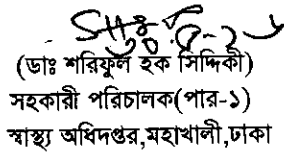 (ডাঃ শরিফুল হক সিদ্দিকী)
সহকারী পরিচালক(পার-১)
স্বাস্থ্য অধিদপ্তর,মহাখালী,ঢাকা